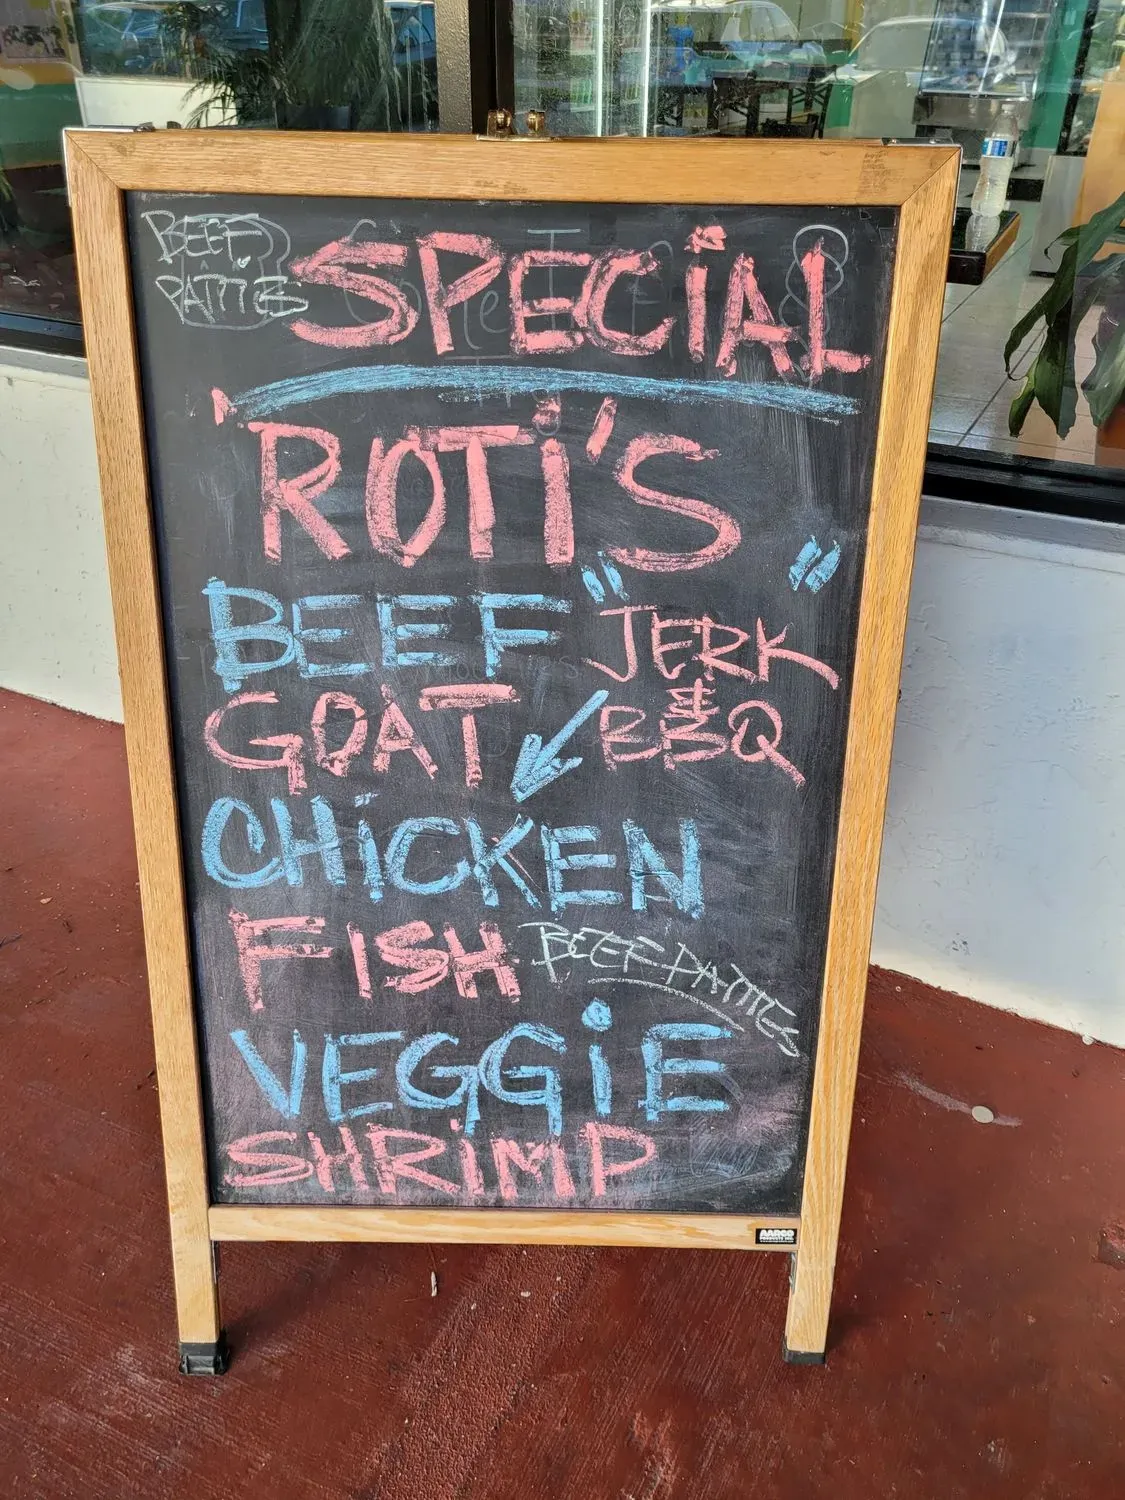 BEEF
PATTIES
SPECiAL
'ROTi'S
BEEF "JERK"
GOAT & BBQ
CHiCKEN
FISH BEEF PATTIES
VEGGiE
SHRiMP
AARCO